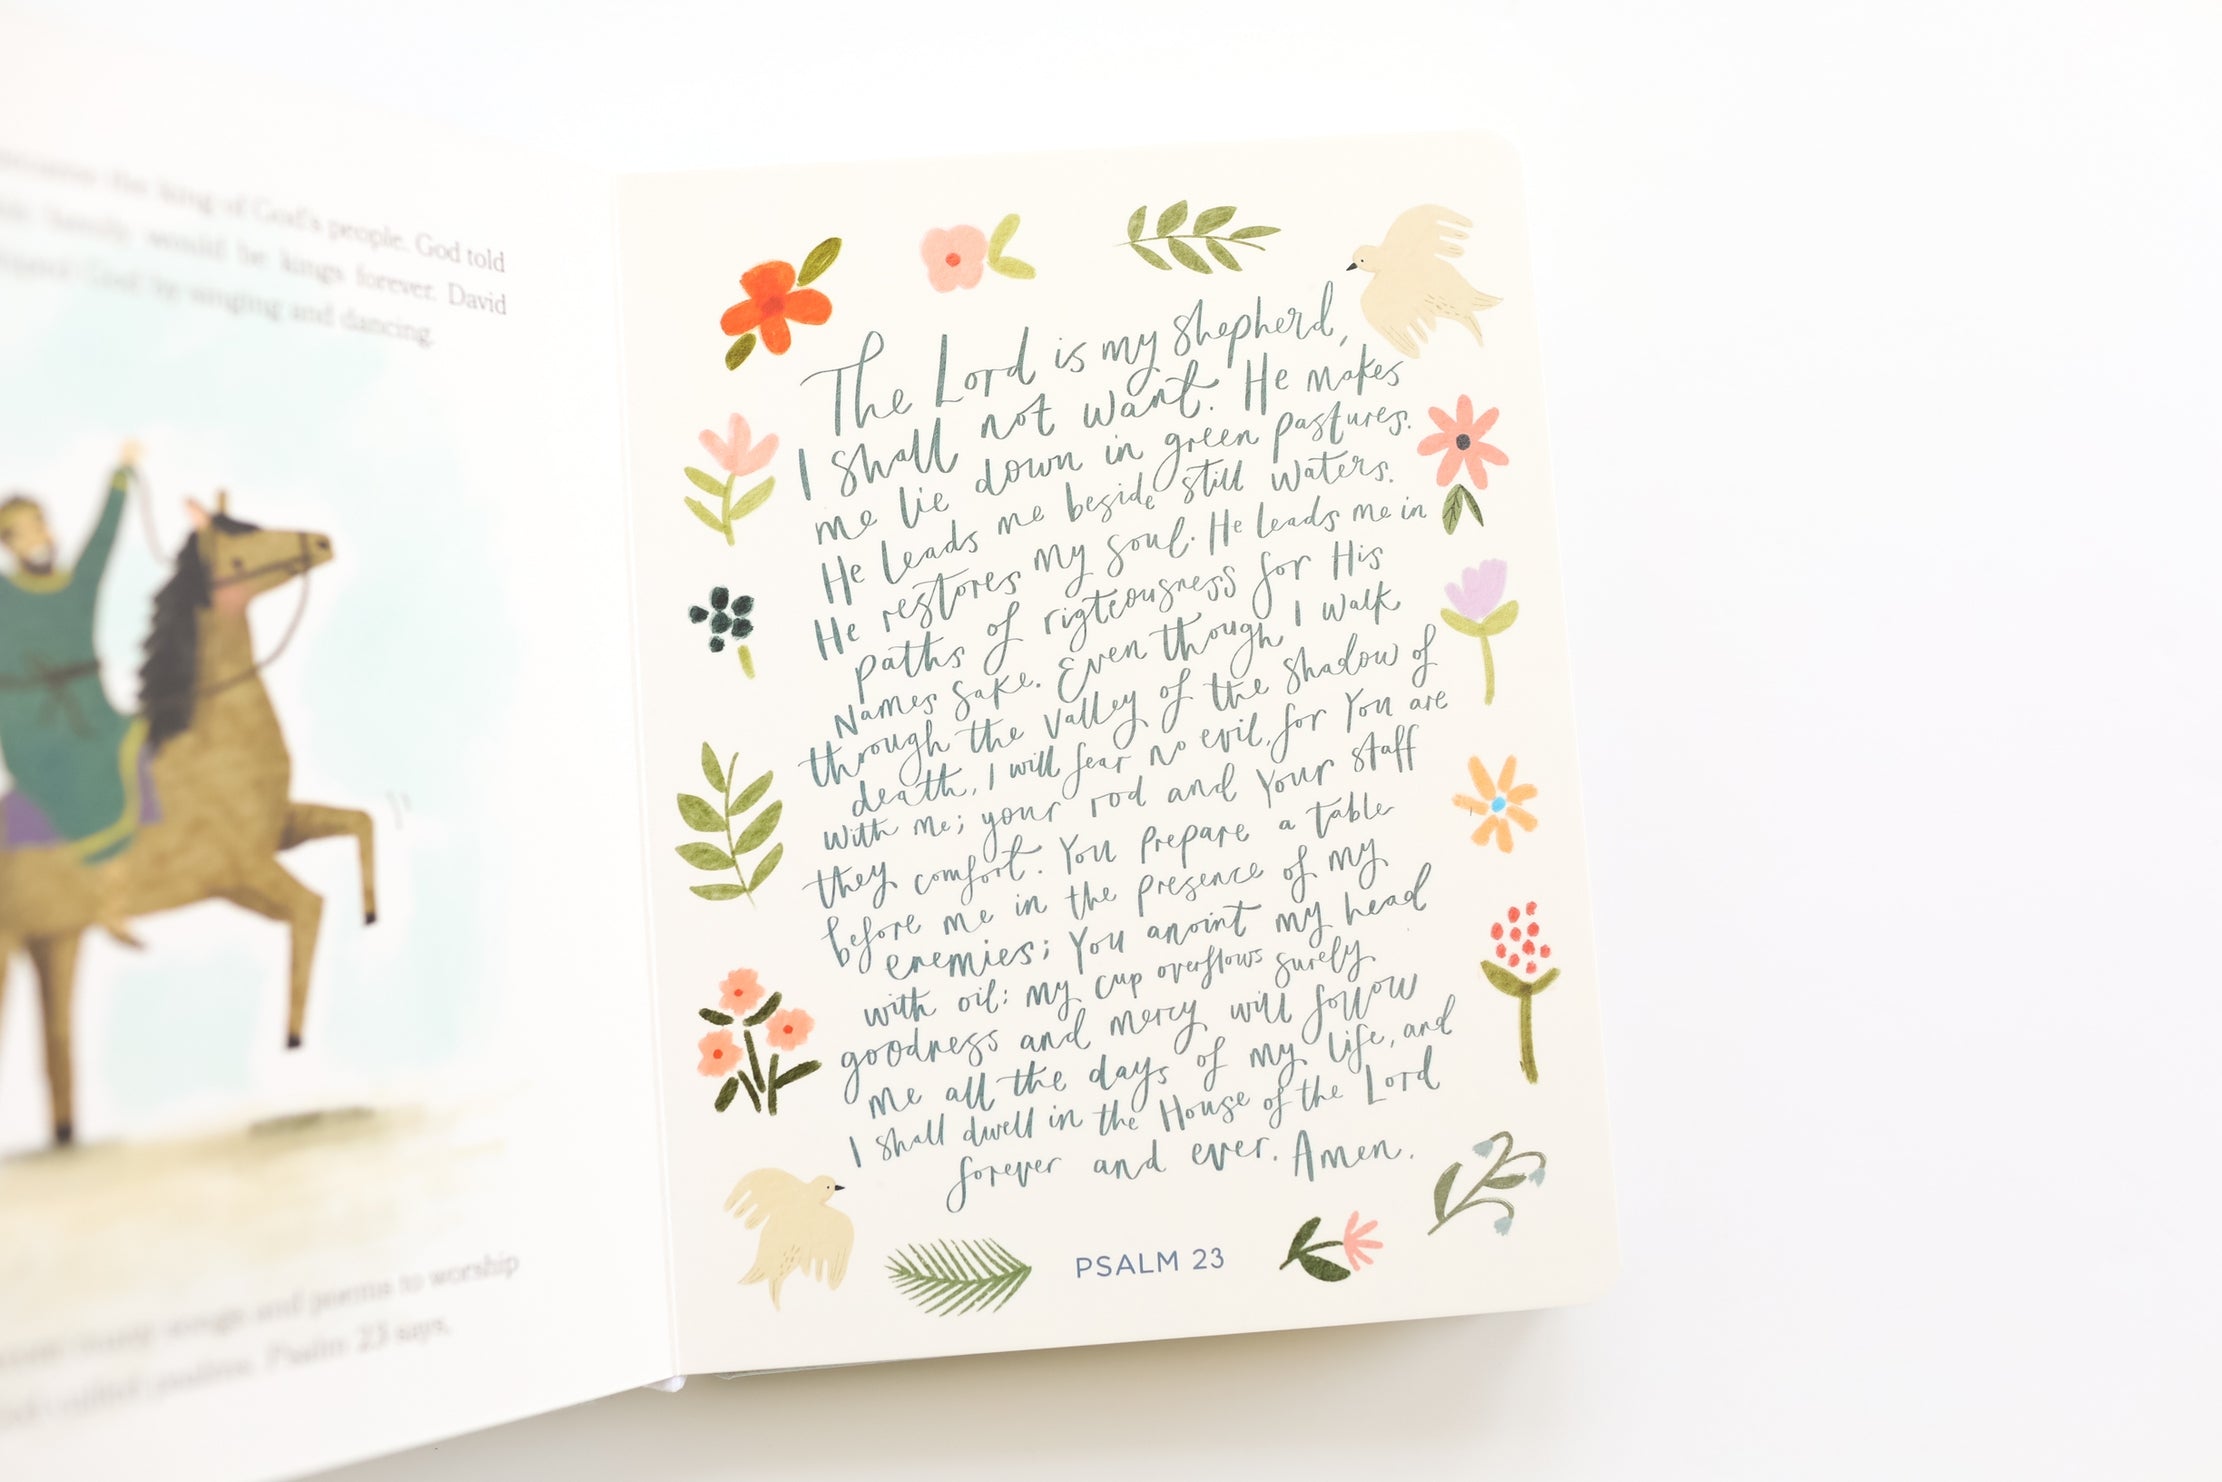 became the king of God's people. God told
family would be kings forever. David
God by singing and dancing.
many songs and poems to worship
called psalms. Psalm 23 says,
The Lord is my shepherd,
I shall not want. He makes
me lie down in green pastures.
He leads me beside still waters.
He restores my soul. He leads me in
paths of rigteousness for His
Names sake. Even though I walk
through the valley of the shadow of
death, I will fear no evil, for You are
with me; your rod and Your staff
they comfort. You prepare a table
before me in the presence of my
enemies; You anoint my head
with oil: my cup overflows surely
goodness and mercy will follow
me all the days of my life, and
I shall dwell in the House of the Lord
forever and ever. Amen.
PSALM 23